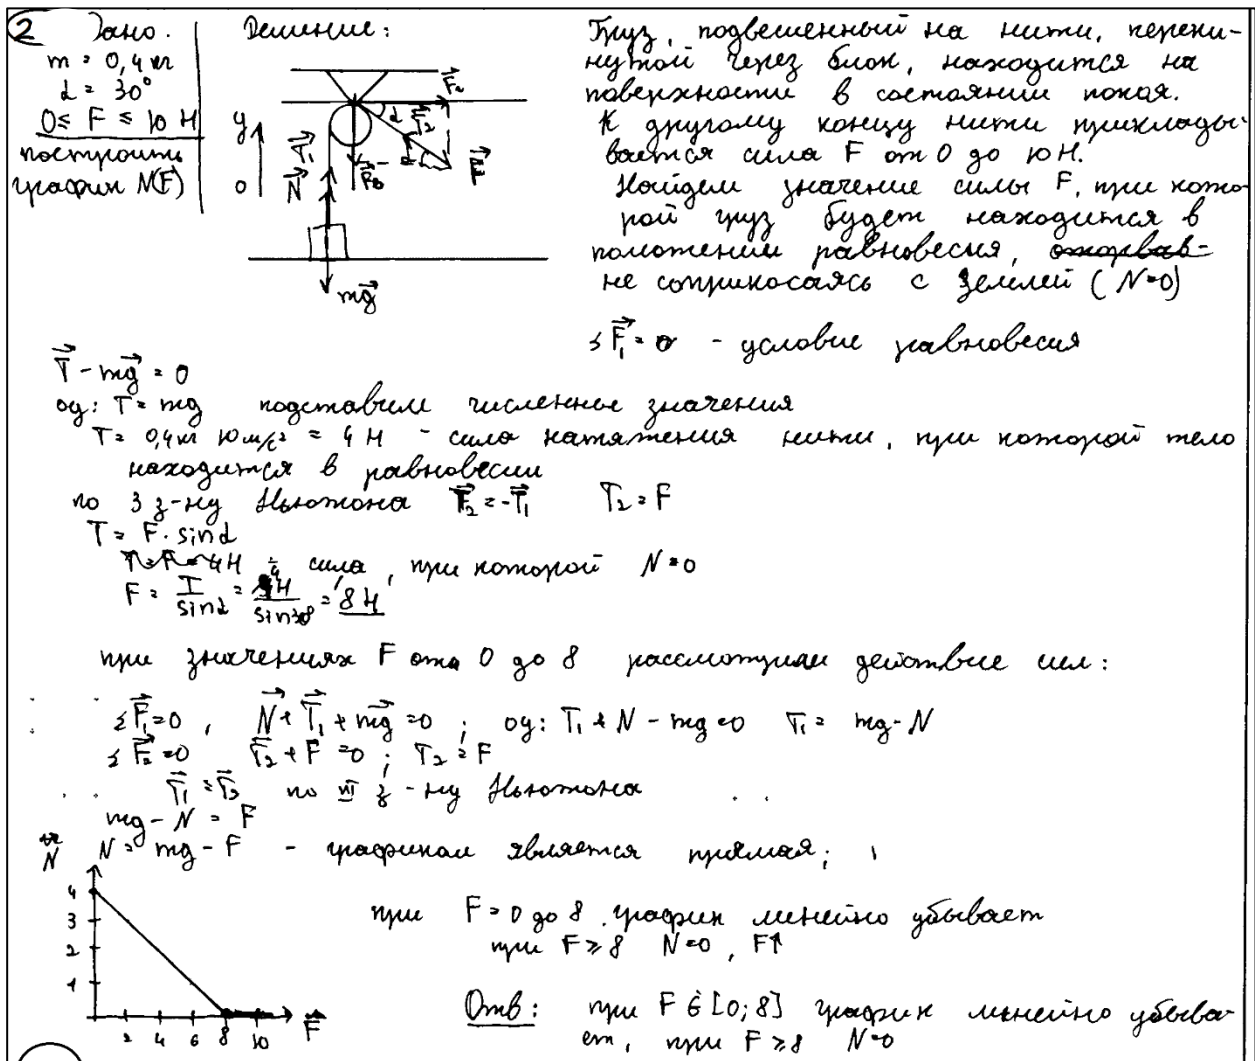 2 Дано: Решение:
m = 0,4 кг
α = 30°
0 ≤ F ≤ 10 Н
построить
график N(F)
y
0
N
mg
α
Груз, подвешенный на нити, переки-
нутой через блок, находится на
поверхности в состоянии покоя.
К другому концу нити приклады-
вается сила F от 0 до 10 Н.
Найдем значение силы F, при кото-
рой груз будет находится в
положении равновесия,
не соприкосаясь с Землей (N=0)
Σ F₁ = 0 - условие равновесия
T - mg = 0
oy: T = mg подставим численные значения
T = 0,4кг 10м/с² = 4 Н - сила натяжения нити, при которой тело
находится в равновесии
по 3 з-ну Ньютона T₂ = -T₁ T₂ = F
T = F · sinα
сила, при которой N = 0
F = T/sinα = 4Н/sin30 = 8 Н
при значениях F от 0 до 8 рассмотрим действие сил:
Σ F₁ = 0, N + T₁ + mg = 0; oy: T₁ + N - mg = 0 T₁ = mg - N
Σ F₂ = 0 T₂ + F = 0; T₂ = F
T₁ = T₂ по III з-ну Ньютона
mg - N = F
N = mg - F - графиком является прямая;
N
4
3
2
1
2 4 6 8 10 F
при F = 0 до 8 график линейно убывает
при F ≥ 8 N = 0, F↑
Отв: при F ∈ [0; 8] график линейно убыва-
ет, при F ≥ 8 N=0